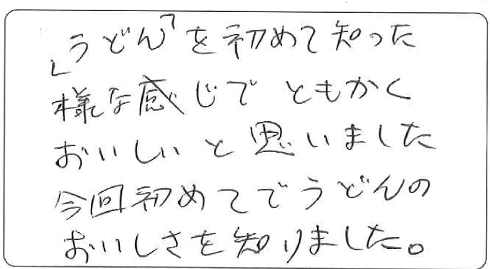 「うどん」を初めて知った
様な感じで ともかく
おいしいと思いました
今回初めてでうどんの
おいしさを知りました。